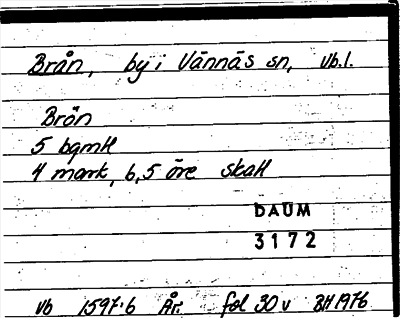 Brån, by i Vännäs sn, Vb.l.
Brön
5 bgmtl
4 mark, 6,5 öre skatt
DAUM
3172
Vb 1597:6 År. fol 30 v BH 1976